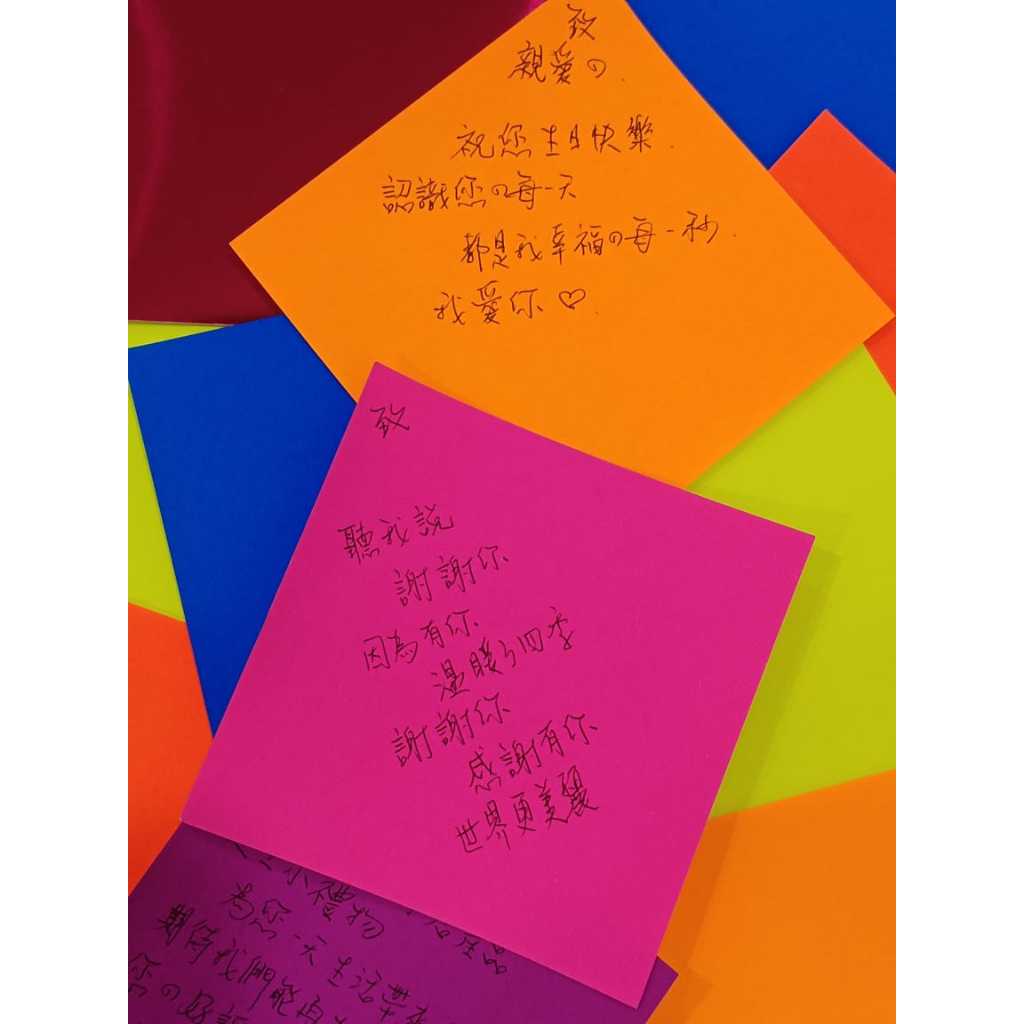 致
親愛の.
祝您生日快樂.
認識您の每一天
都是我幸福の每一秒.
我愛你♡.
致
聽我說
謝謝你
因為有你
溫暖了四季
謝謝你
感謝有你
世界更美麗
小禮物
為您一天生活帶來
期待我們能再
您の好